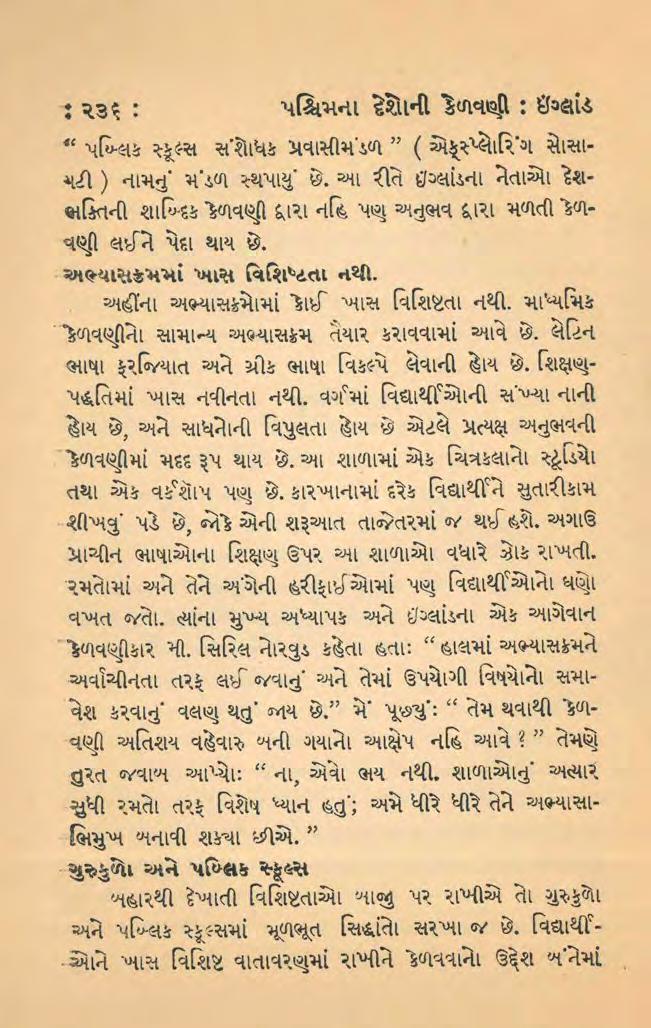 : ૨૩૬ : પશ્ચિમના દેશોની કેળવણી : ઇંગ્લાંડ
“ પબ્લિક સ્કૂલ્સ સંશોધક પ્રવાસીમંડળ ” ( એક્સ્પ્લોરિંગ સોસા-
યટી ) નામનું મંડળ સ્થપાયું છે. આ રીતે ઇંગ્લાંડના નેતાઓ દેશ-
ભક્તિની શાબ્દિક કેળવણી દ્વારા નહિ પણ અનુભવ દ્વારા મળતી કેળ-
વણી લઈને પેદા થાય છે.
અભ્યાસક્રમમાં ખાસ વિશિષ્ટતા નથી.
અહીંના અભ્યાસક્રમોમાં કોઈ ખાસ વિશિષ્ટતા નથી. માધ્યમિક
કેળવણીનો સામાન્ય અભ્યાસક્રમ તૈયાર કરાવવામાં આવે છે. લેટિન
ભાષા ફરજિયાત અને ગ્રીક ભાષા વિકલ્પે લેવાની હોય છે. શિક્ષણ-
પદ્ધતિમાં ખાસ નવીનતા નથી. વર્ગમાં વિદ્યાર્થીઓની સંખ્યા નાની
હોય છે, અને સાધનોની વિપુલતા હોય છે એટલે પ્રત્યક્ષ અનુભવની
કેળવણીમાં મદદ રૂપ થાય છે. આ શાળામાં એક ચિત્રકલાનો સ્ટૂડિયો
તથા એક વર્કશૉપ પણ છે. કારખાનામાં દરેક વિદ્યાર્થીને સુતારીકામ
શીખવું પડે છે, જોકે એની શરૂઆત તાજેતરમાં જ થઈ હશે. અગાઉ
પ્રાચીન ભાષાઓના શિક્ષણ ઉપર આ શાળાઓ વધારે ઝોક રાખતી.
રમતોમાં અને તેને અંગેની હરીફાઈઓમાં પણ વિદ્યાર્થીઓનો ઘણો
વખત જતો. ત્યાંના મુખ્ય અધ્યાપક અને ઇંગ્લાંડના એક આગેવાન
કેળવણીકાર મી. સિરિલ નોરવુડ કહેતા હતાઃ “ હાલમાં અભ્યાસક્રમને
અર્વાચીનતા તરફ લઈ જવાનું અને તેમાં ઉપયોગી વિષયોનો સમા-
વેશ કરવાનું વલણ થતું જાય છે.” મેં પૂછ્યું: “ તેમ થવાથી કેળ-
વણી અતિશય વહેવારુ બની ગયાનો આક્ષેપ નહિ આવે ? ” તેમણે
તુરત જવાબ આપ્યોઃ “ ના, એવો ભય નથી. શાળાઓનું અત્યાર
સુધી રમતો તરફ વિશેષ ધ્યાન હતું; અમે ધીરે ધીરે તેને અભ્યાસા-
ભિમુખ બનાવી શક્યા છીએ. ”
ગુરુકુળો અને પબ્લિક સ્કૂલ્સ
બહારથી દેખાતી વિશિષ્ટતાઓ બાજુ પર રાખીએ તો ગુરુકુળો
અને પબ્લિક સ્કૂલ્સમાં મૂળભૂત સિદ્ધાંતો સરખા જ છે. વિદ્યાર્થી-
ઓને ખાસ વિશિષ્ટ વાતાવરણમાં રાખીને કેળવવાનો ઉદ્દેશ બંનેમાં